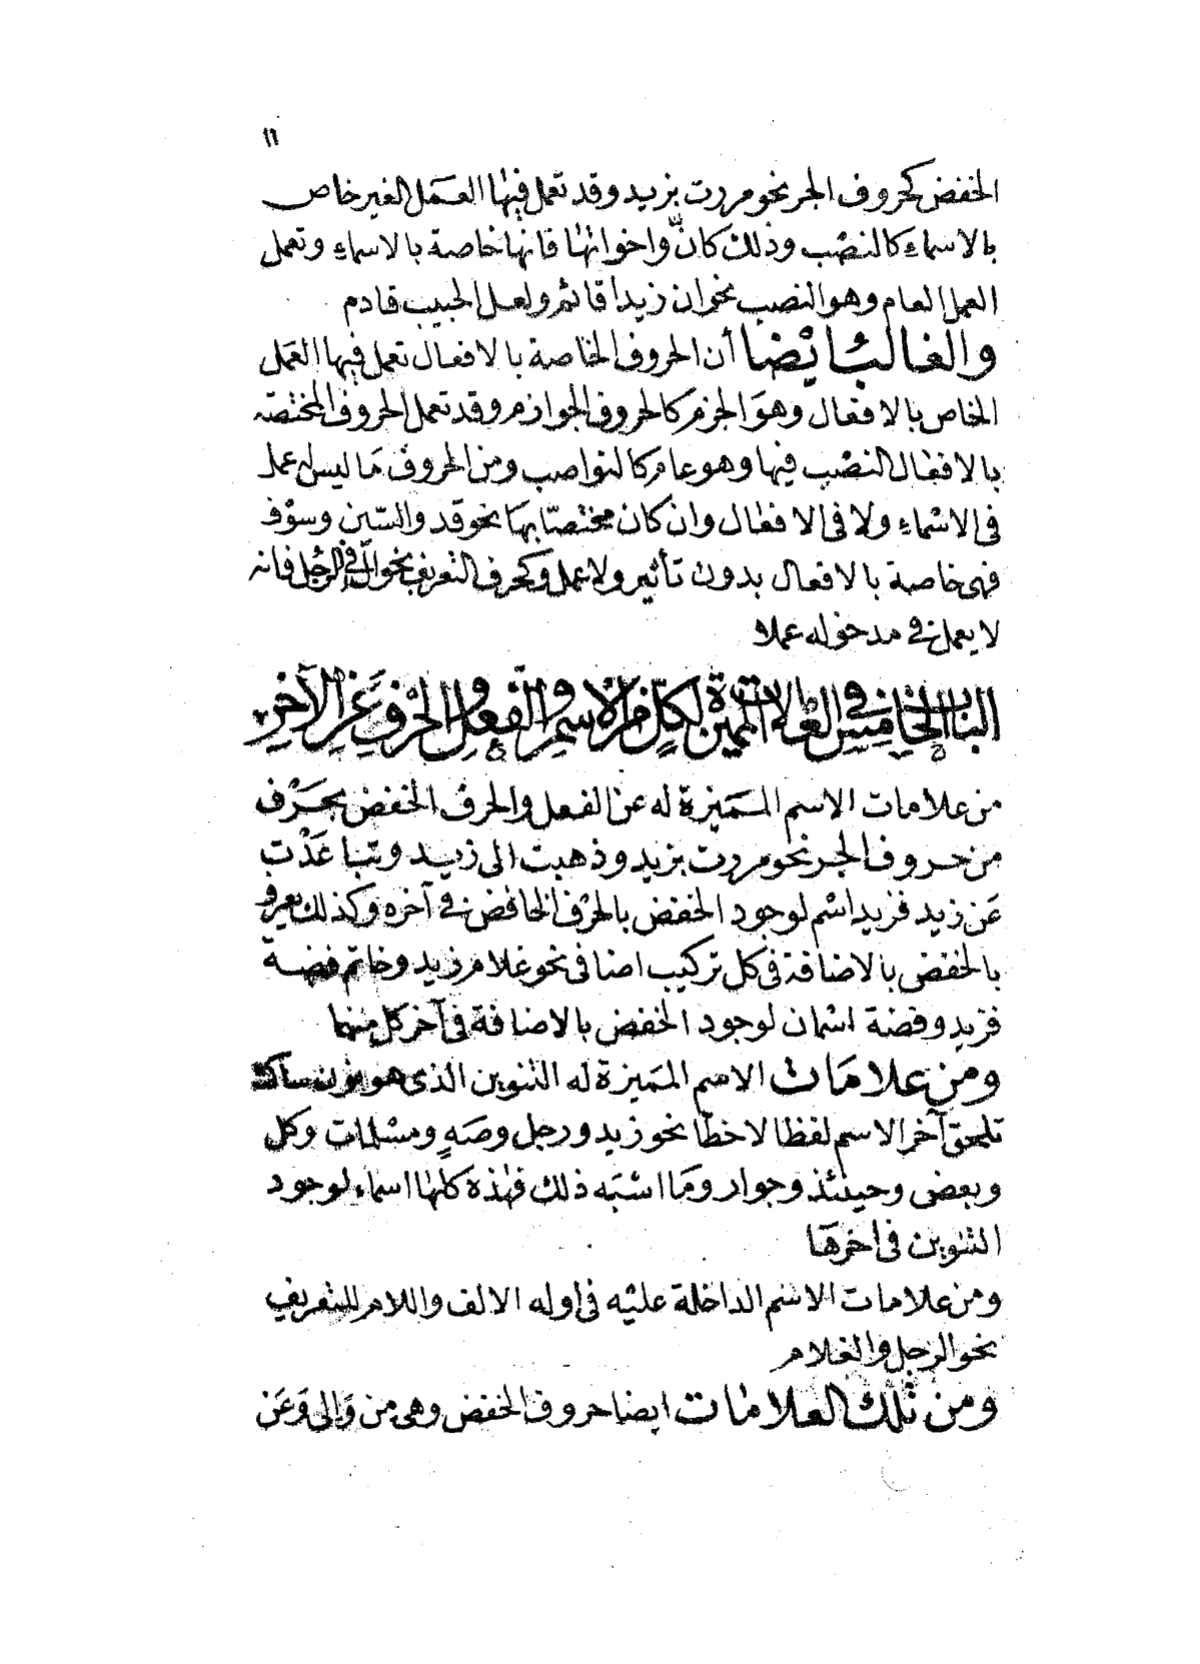 ١١
الخفض كحروف الجر نحو مررت بزيد وقد تعمل فيها العمل الغير خاص
بالاسماء كالنصب وذلك كانّ واخواتها فانها خاصة بالاسماء وتعمل
العمل العام وهو النصب نحو ان زيدا قائم ولعل الحبيب قادم
والغالب ايضا أن الحروف الخاصة بالافعال تعمل فيها العمل
الخاص بالافعال وهو الجزم كالحروف الجوازم وقد تعمل الحروف المختصة
بالافعال النصب فيها وهو عام كالنواصب ومن الحروف ما ليس له عمل
فى الاسماء ولا فى الافعال وان كان مختصا بها نحو قد والسين وسوف
فهى خاصة بالافعال بدون تأثير ولا عمل وكحرف التعريف نحو ال في الرجل فانه
لا يعمل في مدخوله عملا
الباب الخامس في العلامات المميزة لكل من الاسم والفعل والحرف عن الآخر
من علامات الاسم المميزة له عن الفعل والحرف الخفض بحرف
من حروف الجر نحو مررت بزيد وذهبت الى زيد وتباعدت
عن زيد فزيد اسم لوجود الخفض بالحرف الخافض في آخره وكذلك يعرف
بالخفض بالاضافة فى كل تركيب اضافى نحو غلام زيد وخاتم فضة
فزيد وفضة اسمان لوجود الخفض بالاضافة فى آخر كل منهما
ومن علامات الاسم المميزة له التنوين الذى هو نون ساكنة
تلحق آخر الاسم لفظا لا خطا نحو زيد ورجل وصَهٍ ومسلمات وكل
وبعض وحينئذ وجوار وما اشبه ذلك فهذه كلها اسماء لوجود
التنوين فى آخرها
ومن علامات الاسم الداخلة عليه فى اوله الالف واللام للتعريف
نحو الرجل والغلام
ومن تلك العلامات ايضا حروف الخفض وهى من وَالى وَعَن